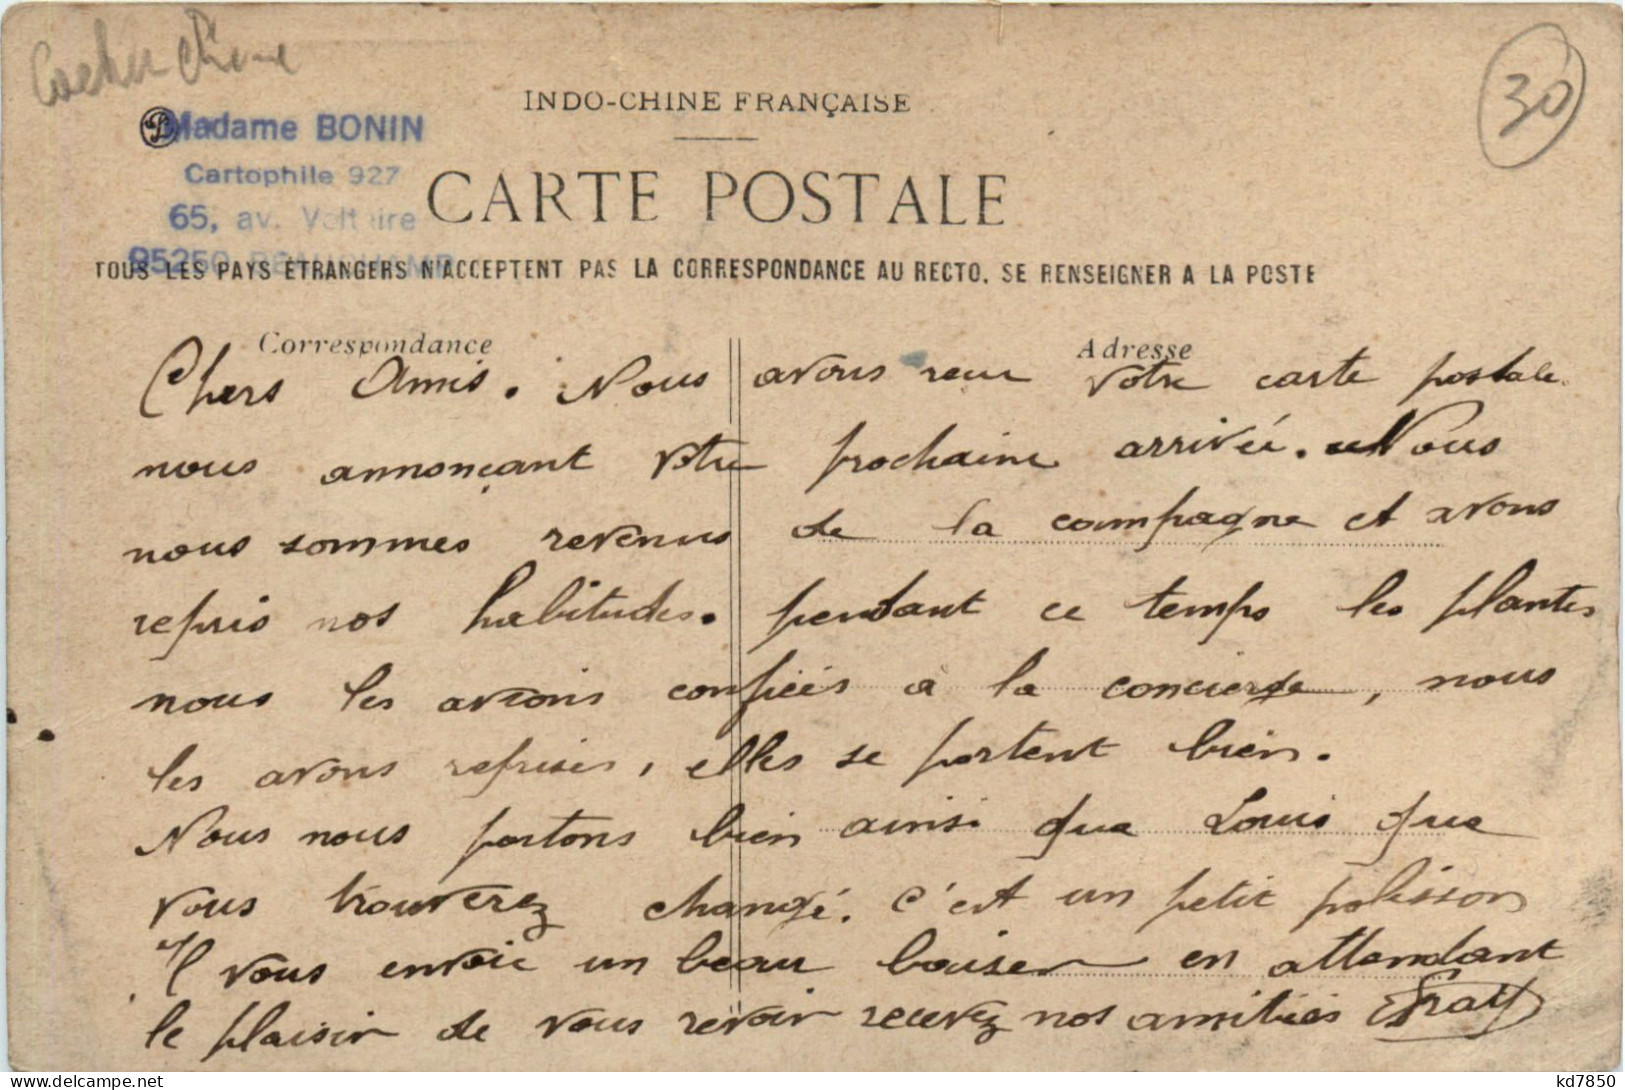 Cochinchine
30
INDO-CHINE FRANÇAISE
Madame BONIN
Cartophile 927
65, av. Voltaire
95250 BEAUCHAMP
CARTE POSTALE
TOUS LES PAYS ÉTRANGERS N'ACCEPTENT PAS LA CORRESPONDANCE AU RECTO. SE RENSEIGNER A LA POSTE
Correspondance
Adresse
Chers Amis. Nous avons reçu votre carte postale
nous annonçant votre prochaine arrivée. Nous
nous sommes revenus de la campagne et avons
repris nos habitudes. pendant ce temps les plantes
nous les avions confiées à la concierge, nous
les avons reprises, elles se portent bien.
Nous nous portons bien ainsi que Louis que
vous trouverez changé. c'est un petit polisson
Il vous envoie un beau baiser en attendant
le plaisir de vous revoir recevez nos amitiés
kd7850